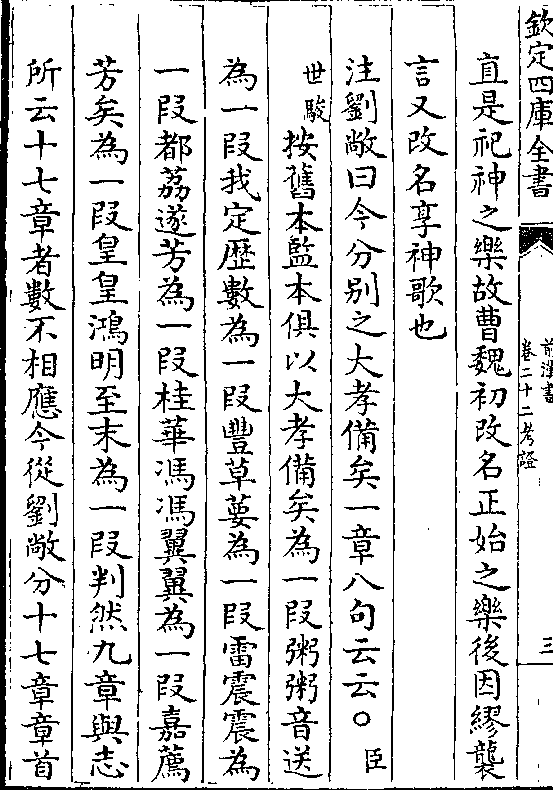 欽定四庫全書
前漢書
卷二十二考證
三
直是祀神之樂故曹魏初改名正始之樂後因繆襲
言又改名享神歌也
注劉敞曰今分别之大孝備矣一章八句云云○臣
世駿按舊本監本俱以大孝備矣為一段粥粥音送
為一段我定歴數為一段豐草葽為一段雷震震為
一段都荔遂芳為一段桂華馮馮翼翼為一段嘉薦
芳矣為一段皇皇鴻明至末為一段判然九章與志
所云十七章者數不相應今從劉敞分十七章章首